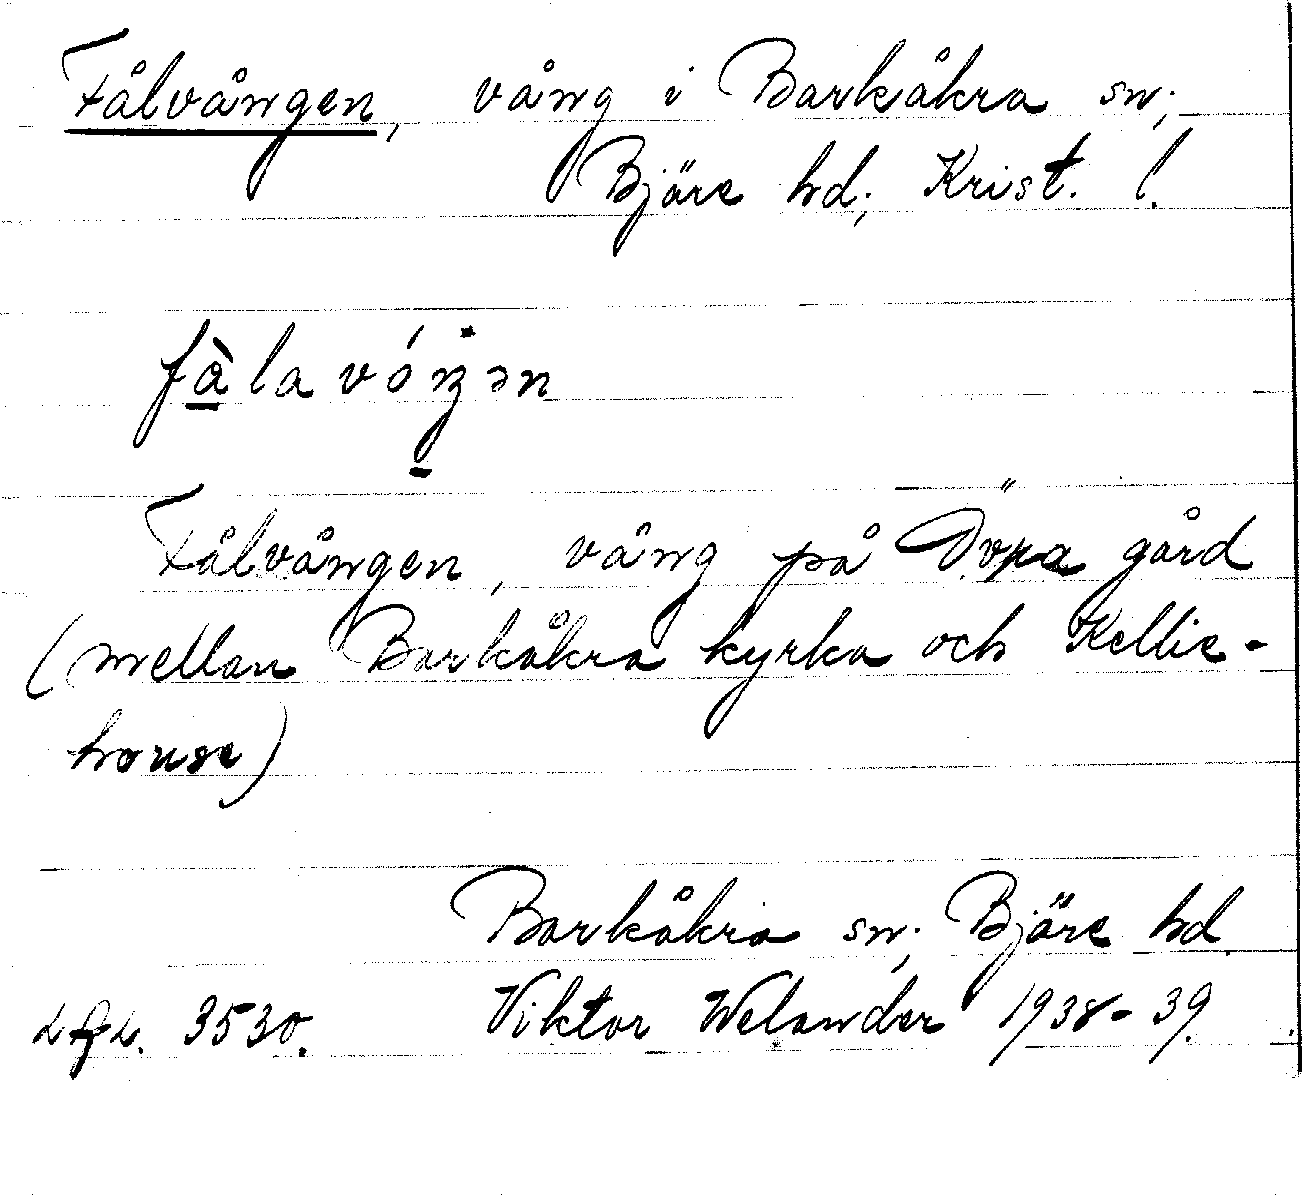 Fålvången, vång i Barkåkra sn;
Bjäre hd; Krist. l.
fàlavóŋən
Fålvången, vång på Döpa gård
(mellan Barkåkra kyrka och Kellie-
house)
Barkåkra sn; Bjäre hd.
3530. Viktor Welander 1938-39.